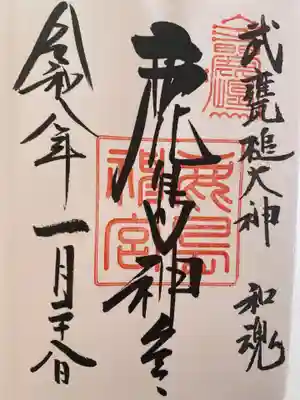 武甕槌大神 和魂
鹿島神宮
鹿島神宮
令和八年 一月二十八日